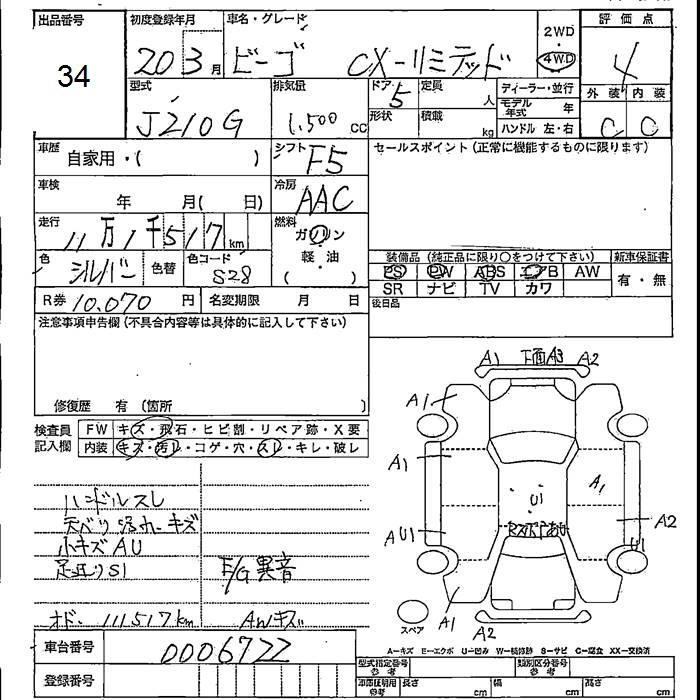 出品番号
34
初度登録年月
20 3月
車名・グレード
ビーゴ CX-リミテッド
2WD
4WD
評価点
4
外装 内装
C C
型式
J210G
排気量
1,500cc
ドア 5
定員 人
形状
積載 kg
ディーラー・並行
モデル年式 年
ハンドル 左・右
車歴
自家用・( )
シフト F5
セールスポイント(正常に機能するものに限ります)
車検
年 月( 日)
冷房 AAC
走行
11万1千517km
燃料
ガソリン
軽・油
( )
色 シルバー
色替
色コード S28
装備品(純正品に限り○をつけて下さい)
新車保証書
PS PW ABS エアB AW
有・無
SR ナビ TV カワ
R券 10,070円
名変期限 月 日
後日品
注意事項申告欄(不具合内容等は具体的に記入して下さい)
修復歴 有(箇所 )
検査員記入欄
FW キズ・飛石・ヒビ割・リペア跡・X要
内装 キズ・汚レ・コゲ・穴・スレ・キレ・破レ
ハンドルスレ
天ベリ キズ
小キズAU
足廻りS1
E/G異音
オド. 111517km
AWキズ
A1 下面A3 A2
A1
A1
A1
U1
AU1
A2
U1
A1
A2
スペア
A-キズ E-エクボ U-凹み W-補修跡 S-サビ C-腐食 XX-交換済
車台番号
0006722
登録番号
型式指定番号 参考
類別区分番号 参考
車庫証明用 参考
長さ cm
幅 cm
高さ cm